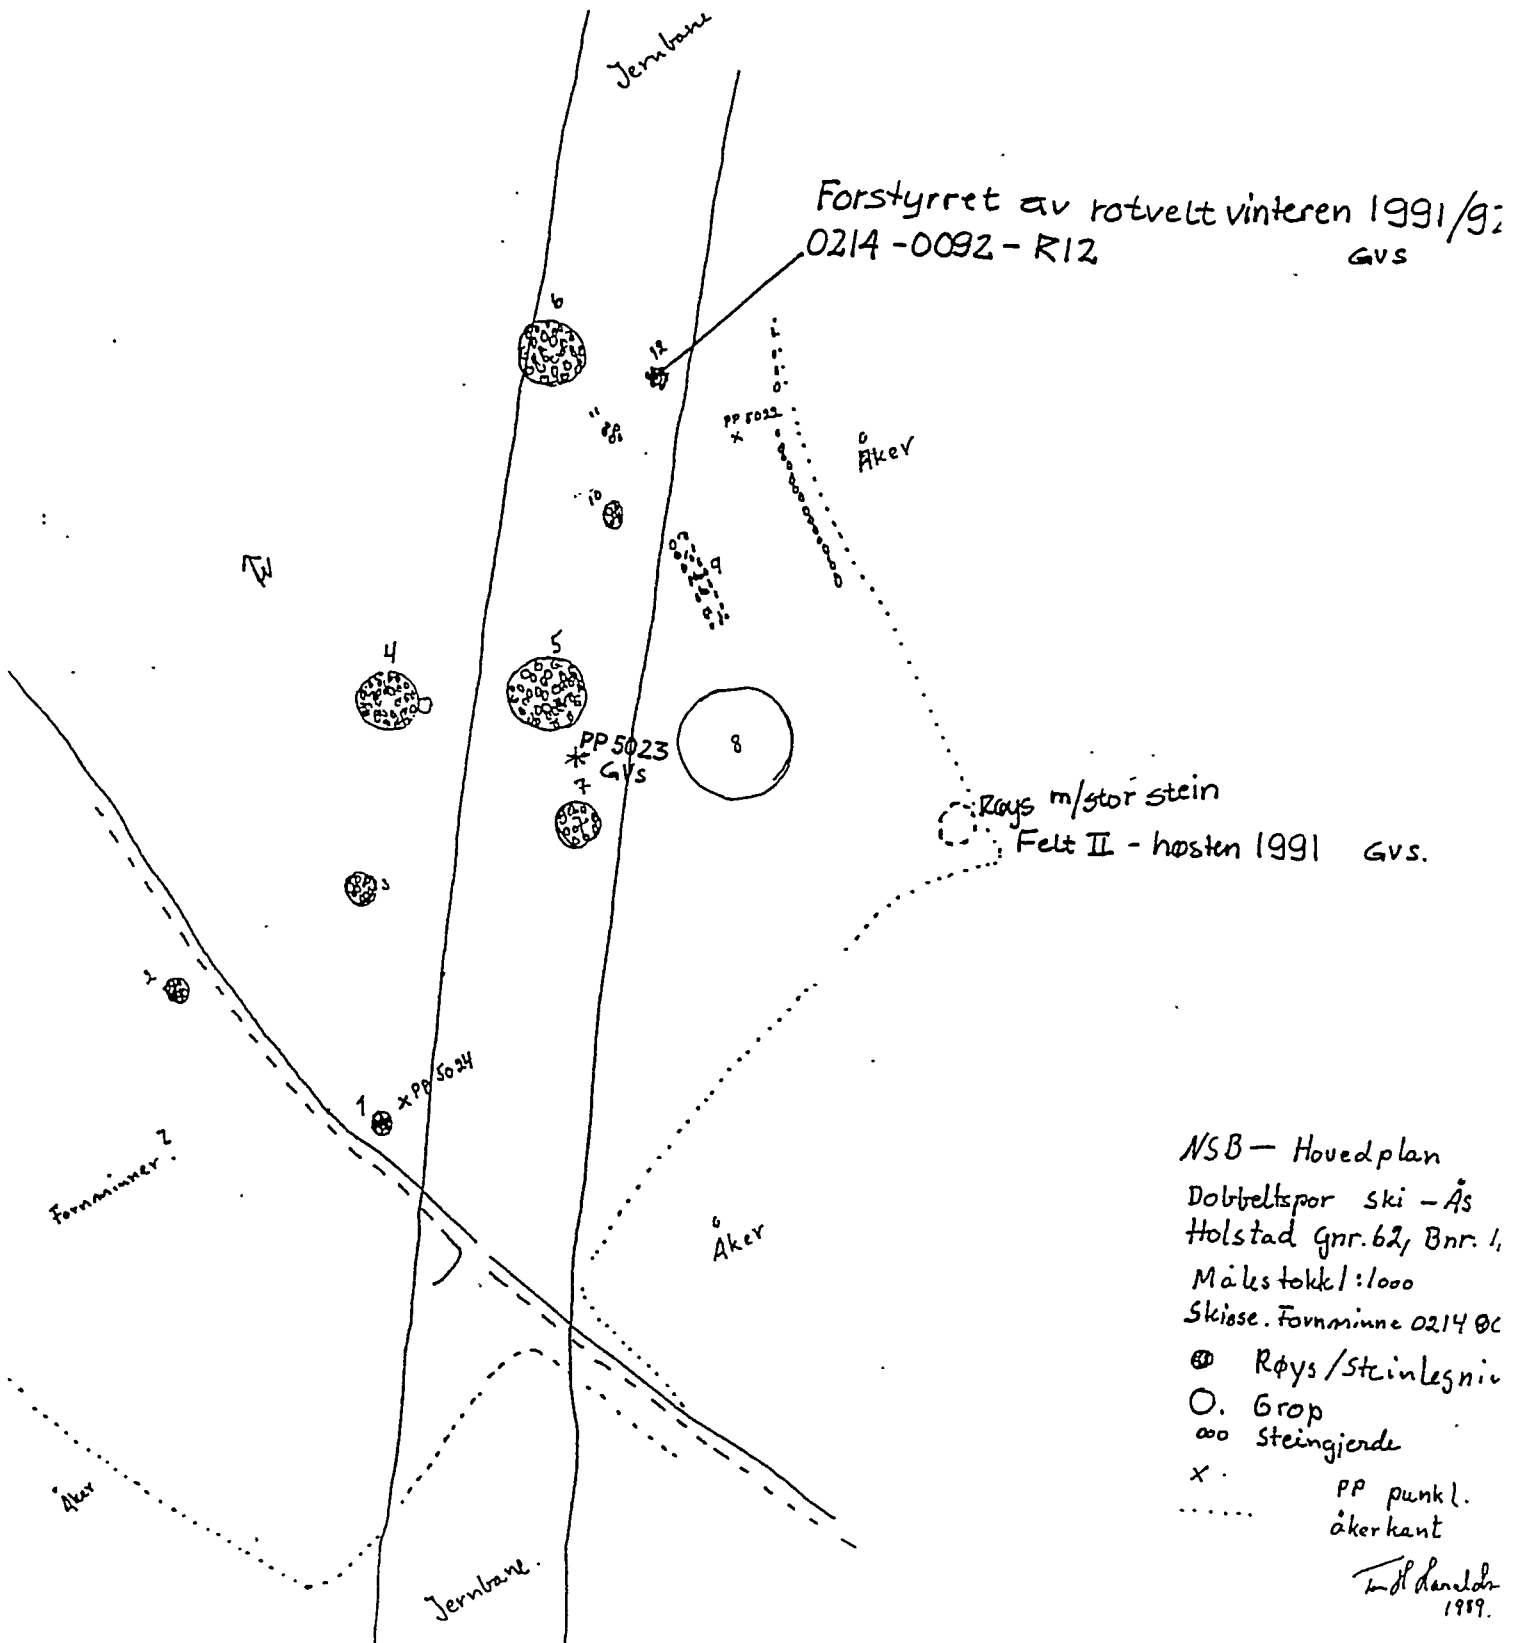 Jernbane
Forstyrret av rotvelt vinteren 1991/92
0214-0092-R12
GVS
6
12
11
PP 5022
x
Åker
10
9
N
4
5
8
PP 5023
GVS
7
Røys m/stor stein
Felt II - høsten 1991 GVS.
3
2
1
x PP 5024
Fornminner?
Åker
NSB — Hovedplan
Dobbeltspor Ski - Ås
Holstad Gnr. 62, Bnr. 1,
Målestokk 1:1000
Skisse. Fornminne 0214
Røys/Steinlegnin
Grop
Steingjerde
x PP punkt.
åkerkant
1989.
Åker
Jernbane.